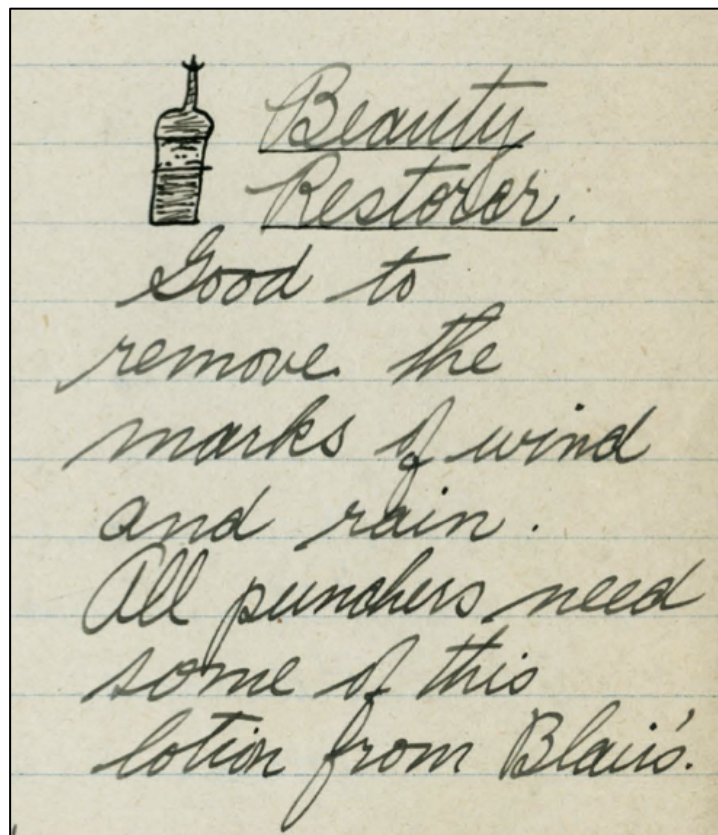 Beauty
Restorer.
Good to
remove the
marks of wind
and rain.
All punchers need
some of this
lotion from Blair's.